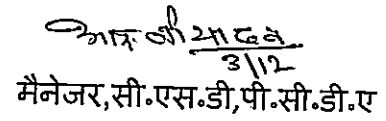 आर. जी यादव
3/12
मैनेजर,सी॰एस॰डी,पी॰सी॰डी॰ए